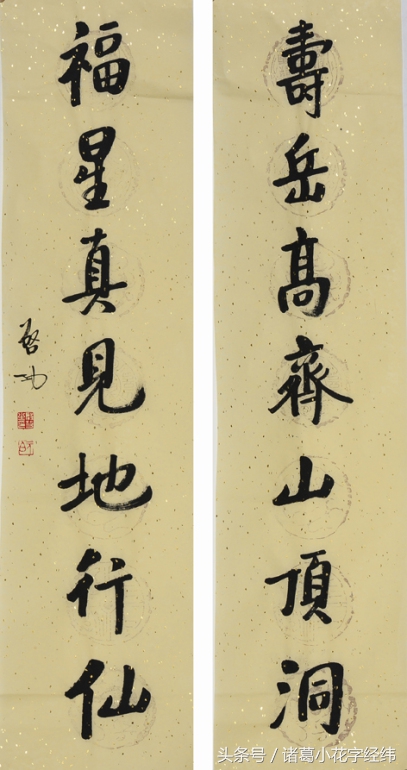 壽岳高齊山頂洞
福星真見地行仙
啓功
头条号 / 诸葛小花字经纬